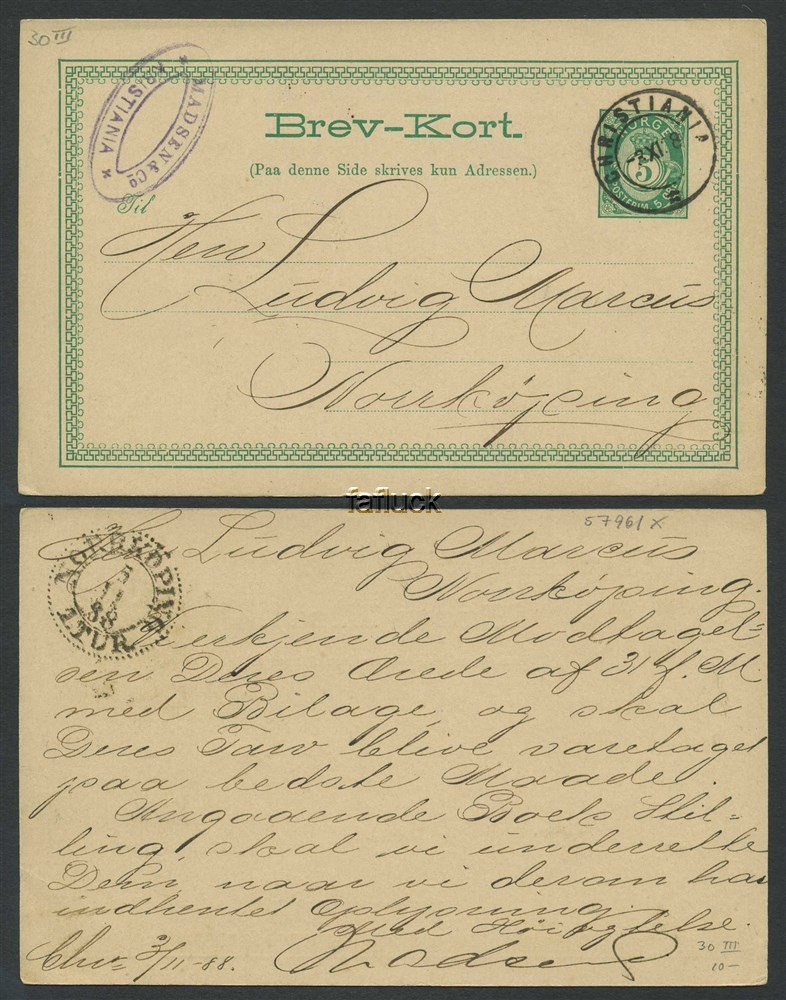 30 III
MADSEN & Co
KRISTIANIA
Brev-Kort.
(Paa denne Side skrives kun Adressen.)
CHRISTIANIA
NORGE
5
Til
Herr
Ludvig Marcus
Norrköping
fafluck
57961 X
Herr Ludvig Marcus
Norrköping.
NORRKÖPING
1 TUR
88
Anerkjende Modtagel=
sen Deres Ærede af 31 f. M.
med Bilage, og skal
Deres Tarv blive varetaget
paa bedste Maade.
Angaaende Boeks Stil=
ling, skal vi underrette
Dem, naar vi derom har
indhentet Oplysning.
Med Høiagtelse.
Chra 3/11-88.
Madsen
30 III
10-